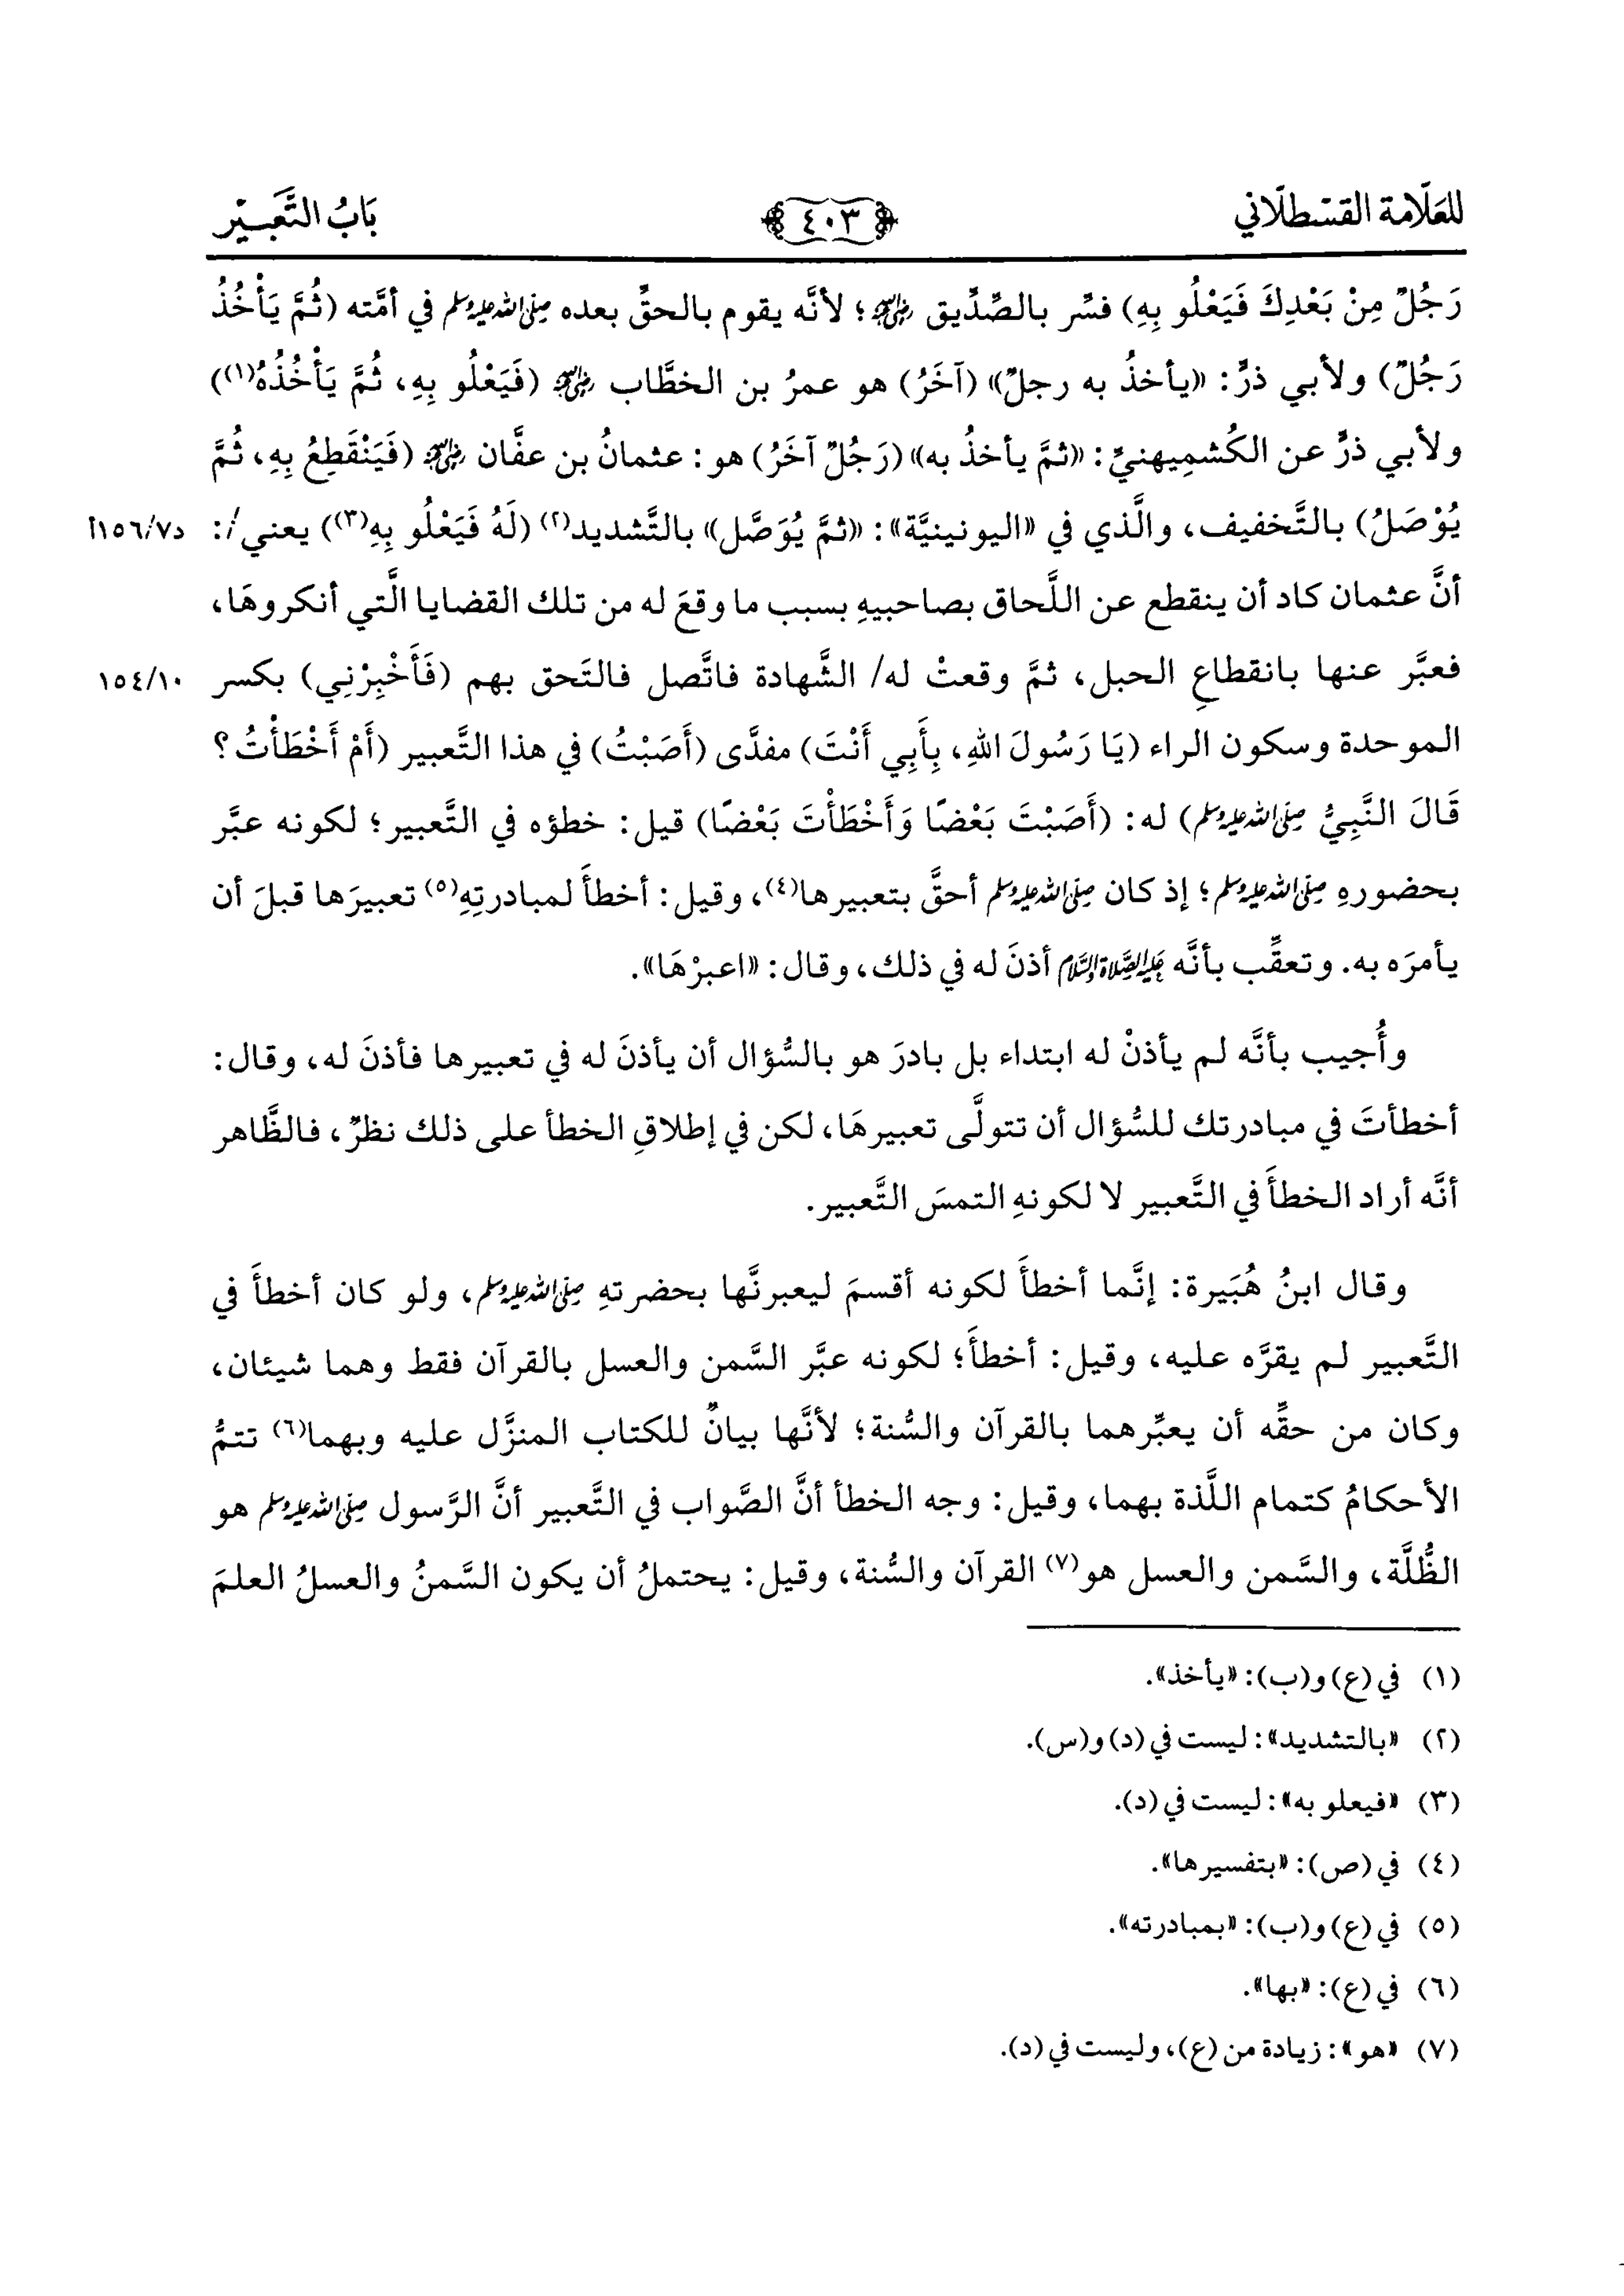 للعلّامة القسْطلّاني
٤٠٣
بَابُ التَّعَبِيْر
رَجُلٌ مِنْ بَعْدِكَ فَيَعْلُو بِهِ) فسِّر بالصِّدِّيق ﵁؛ لأنَّه يقوم بالحقِّ بعده ﷺ في أمَّته (ثُمَّ يَأْخُذُ
رَجُلٌ) ولأبي ذرٍّ: «يأخذُ به رجلٌ» (آخَرُ) هو عمرُ بن الخطَّاب ﵁ (فَيَعْلُو بِهِ، ثُمَّ يَأْخُذُهُ(١))
ولأبي ذرٍّ عن الكُشمِيهنيِّ: «ثمَّ يأخذُ به» (رَجُلٌ آخَرُ) هو: عثمانُ بن عفَّان ﵁ (فَيَنْقَطِعُ بِهِ، ثُمَّ
يُوْصَلُ) بالتَّخفيف، والَّذي في «اليونينيَّة»: «ثمَّ يُوَصَّل» بالتَّشديد(٢) (لَهُ فَيَعْلُو بِهِ(٣)) يعني/: د٧/١٥٦أ
أنَّ عثمان كاد أن ينقطع عن اللَّحاق بصاحبيهِ بسبب ما وقعَ له من تلك القضايا الَّتي أنكروهَا،
فعبَّر عنها بانقطاعِ الحبل، ثمَّ وقعتْ له/ الشَّهادة فاتَّصل فالتَحق بهم (فَأَخْبِرْنِي) بكسر ١٥٤/١٠
الموحدة وسكون الراء (يَا رَسُولَ اللهِ، بِأَبِي أَنْتَ) مفدَّى (أَصَبْتُ) في هذا التَّعبير (أَمْ أَخْطَأْتُ؟
قَالَ النَّبِيُّ ﷺ) له: (أَصَبْتَ بَعْضًا وَأَخْطَأْتَ بَعْضًا) قيل: خطؤه في التَّعبير؛ لكونه عبَّر
بحضورهِ ﷺ؛ إذ كان ﷺ أحقَّ بتعبيرها(٤)، وقيل: أخطأَ لمبادرتِهِ(٥) تعبيرَها قبلَ أن
يأمرَه به. وتعقِّب بأنَّه عَلَيْهِ الصَّلَاة وَالسَّلَام أذنَ له في ذلك، وقال: «اعبرْهَا».
وأُجيب بأنَّه لم يأذنْ له ابتداء بل بادرَ هو بالسُّؤال أن يأذنَ له في تعبيرها فأذنَ له، وقال:
أخطأتَ في مبادرتك للسُّؤال أن تتولَّى تعبيرهَا، لكن في إطلاقِ الخطأ على ذلك نظرٌ، فالظَّاهر
أنَّه أراد الخطأَ في التَّعبير لا لكونهِ التمسَ التَّعبير.
وقال ابنُ هُبَيرة: إنَّما أخطأَ لكونه أقسمَ ليعبرنَّها بحضرتهِ ﷺ، ولو كان أخطأَ في
التَّعبير لم يقرَّه عليه، وقيل: أخطأَ؛ لكونه عبَّر السَّمن والعسل بالقرآن فقط وهما شيئان،
وكان من حقِّه أن يعبِّرهما بالقرآن والسُّنة؛ لأنَّها بيانٌ للكتاب المنزَّل عليه وبهما(٦) تتمُّ
الأحكامُ كتمام اللَّذة بهما، وقيل: وجه الخطأ أنَّ الصَّواب في التَّعبير أنَّ الرَّسول ﷺ هو
الظُّلَّة، والسَّمن والعسل هو(٧) القرآن والسُّنة، وقيل: يحتملُ أن يكون السَّمنُ والعسلُ العلمَ
(١) في (ع) و(ب): «يأخذ».
(٢) «بالتشديد»: ليست في (د) و(س).
(٣) «فيعلو به»: ليست في (د).
(٤) في (ص): «بتفسيرها».
(٥) في (ع) و(ب): «بمبادرته».
(٦) في (ع): «بها».
(٧) «هو»: زيادة من (ع)، وليست في (د).